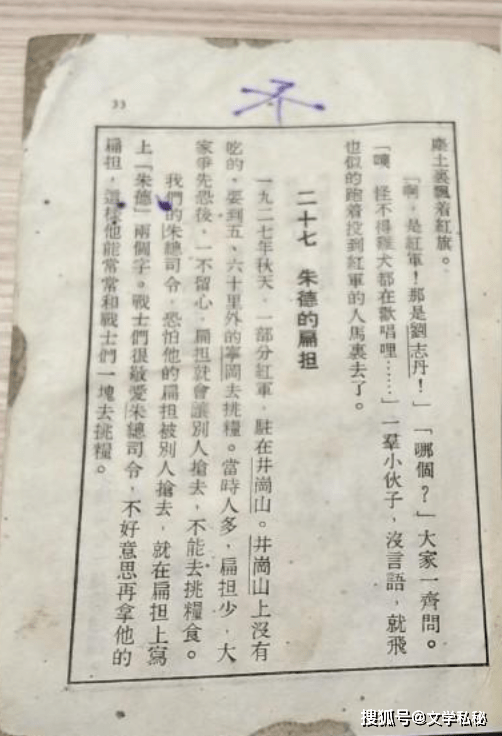 33
塵土裏飄着紅旗。
「啊，是紅軍！那是劉志丹！」「哪個？」大家一齊問。
「噢，怪不得雞犬都在歡唱哩……」一羣小伙子，沒言語，就飛
也似的跑着投到紅軍的人馬裏去了。
二十七　朱德的扁担
一九二七年秋天，一部分紅軍，駐在井崗山。井崗山上沒有
吃的，要到五、六十里外的寧岡去挑糧。當時人多，扁担少，大
家爭先恐後，一不留心，扁担就會讓別人搶去，不能去挑糧食。
我們的朱總司令，恐怕他的扁担被別人搶去，就在扁担上寫
上「朱德」兩個字。戰士們很敬愛朱總司令，不好意思再拿他的
扁担，這樣他能常常和戰士們一塊去挑糧。
搜狐号@文学私秘